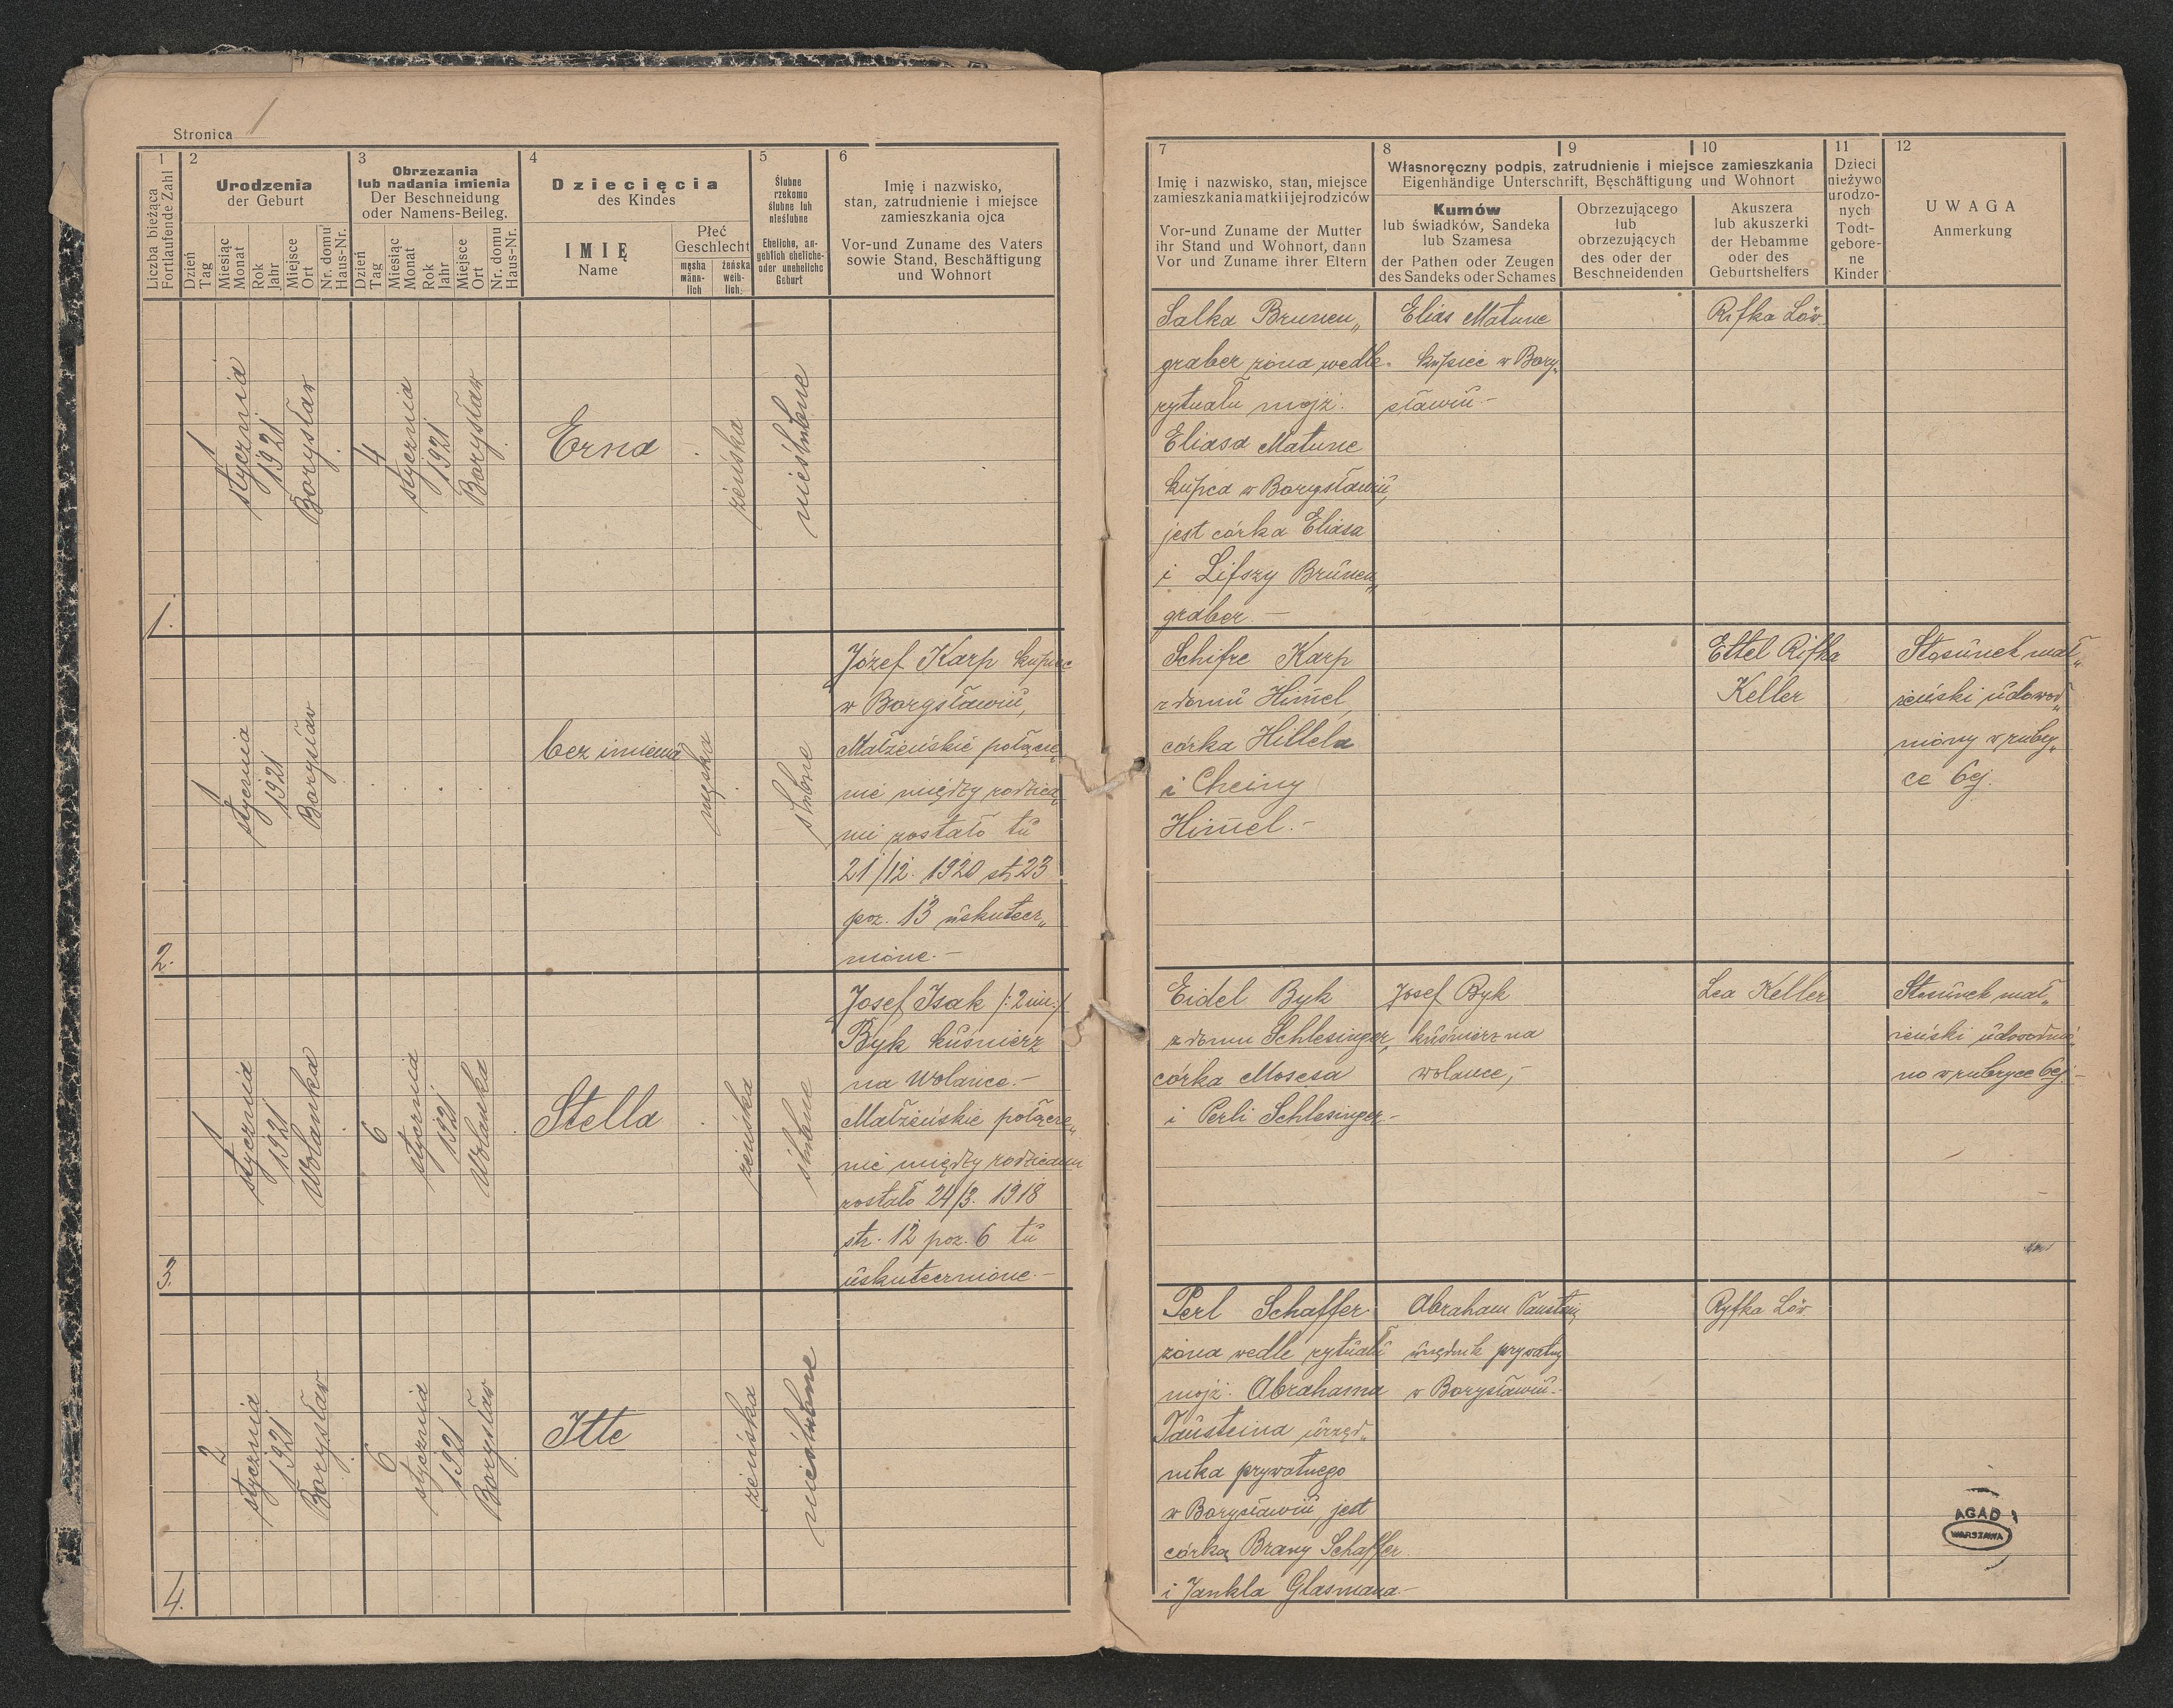 Stronica 1
1
Liczba bieżąca
Fortlaufende Zahl
2
Urodzenia
der Geburt
Dzień
Tag
Miesiąc
Monat
Rok
Jahr
Miejsce
Ort
Nr. domu
Haus-Nr.
3
Obrzezania
lub nadania imienia
Der Beschneidung
oder Namens-Beileg.
Dzień
Tag
Miesiąc
Monat
Rok
Jahr
Miejsce
Ort
Nr. domu
Haus-Nr.
4
Dziecięcia
des Kindes
IMIĘ
Name
Płeć
Geschlecht
męska
männ-
lich
żeńska
weib-
lich
5
Ślubne
rzekomo
ślubne lub
nieślubne
Eheliche, an-
geblich eheliche-
oder uneheliche
Geburt
6
Imię i nazwisko,
stan, zatrudnienie i miejsce
zamieszkania ojca
Vor-und Zuname des Vaters
sowie Stand, Beschäftigung
und Wohnort
7
Imię i nazwisko, stan, miejsce
zamieszkania matki i jej rodziców
Vor-und Zuname der Mutter
ihr Stand und Wohnort, dann
Vor und Zuname ihrer Eltern
8
9
10
Własnoręczny podpis, zatrudnienie i miejsce zamieszkania
Eigenhändige Unterschrift, Bęschäftigung und Wohnort
Kumów
lub świadków, Sandeka
lub Szamesa
der Pathen oder Zeugen
des Sandeks oder Schames
Obrzezującego
lub
obrzezujących
des oder der
Beschneidenden
Akuszera
lub akuszerki
der Hebamme
oder des
Geburtshelfers
11
Dzieci
nieżywo
urodzo-
nych
Todt-
gebore-
ne
Kinder
12
UWAGA
Anmerkung
1.
1
stycznia
1921
Borysław
4
stycznia
1921
Borysław
Erna
żeńska
nieślubne
Salka Brunen„
graber żona wedle
rytuału mojż.
Eliasa Matune
kupca w Borysławiu,
jest córka Eliasa
i Lifszy Brunen„
graber —
Elias Matune
kupiec w Bory„
sławiu —
Rifka Löw.
2.
1
stycznia
1921
Borysław
bez imienia
męska
ślubne
Józef Karp kupiec
w Borysławiu,
Małżeńskie połącze„
nie między rodzica„
mi zostało tu
21/12. 1920 st 23
poz. 13 uskutecz„
nione. —
Schifre Karp
z domu Himel,
córka Hillela
i Cheiny
Himel. —
Ettel Rifka
Keller
Stosunek mał„
żeński udowod„
niony w rubry„
ce 6ej.
3.
1
stycznia
1921
Wolanka
6
stycznia
1921
Wolanka
Stella
żeńska
ślubne
Josef Isak /: 2 im :/
Byk kuśnierz
na Wolance. —
Małżeńskie połącze„
nie między rodzicami
zostało 24/3. 1918
str. 12 poz. 6 tu
uskutecznione. —
Eidel Byk
z domu Schlesinger,
córka Mosesa
i Perli Schlesinger. —
Josef Byk
kuśnierz na
wolance, —
Lea Keller
Stosunek mał„
żeński udowodnio„
no w rubryce 6ej. —
4.
2
stycznia
1921
Borysław
6
stycznia
1921
Borysław
Itte
żeńska
nieślubne
Perl Schaffer
żona wedle rytuału
mojż. Abrahama
Tausteina urzęd„
nika prywatnego
w Borysławiu, jest
córką Brany Schaffer
i Jankla Glasmana. —
Abraham Taustein,
urzędnik prywatny
w Borysławiu. —
Ryfka Löw.
AGAD
WARSZAWA